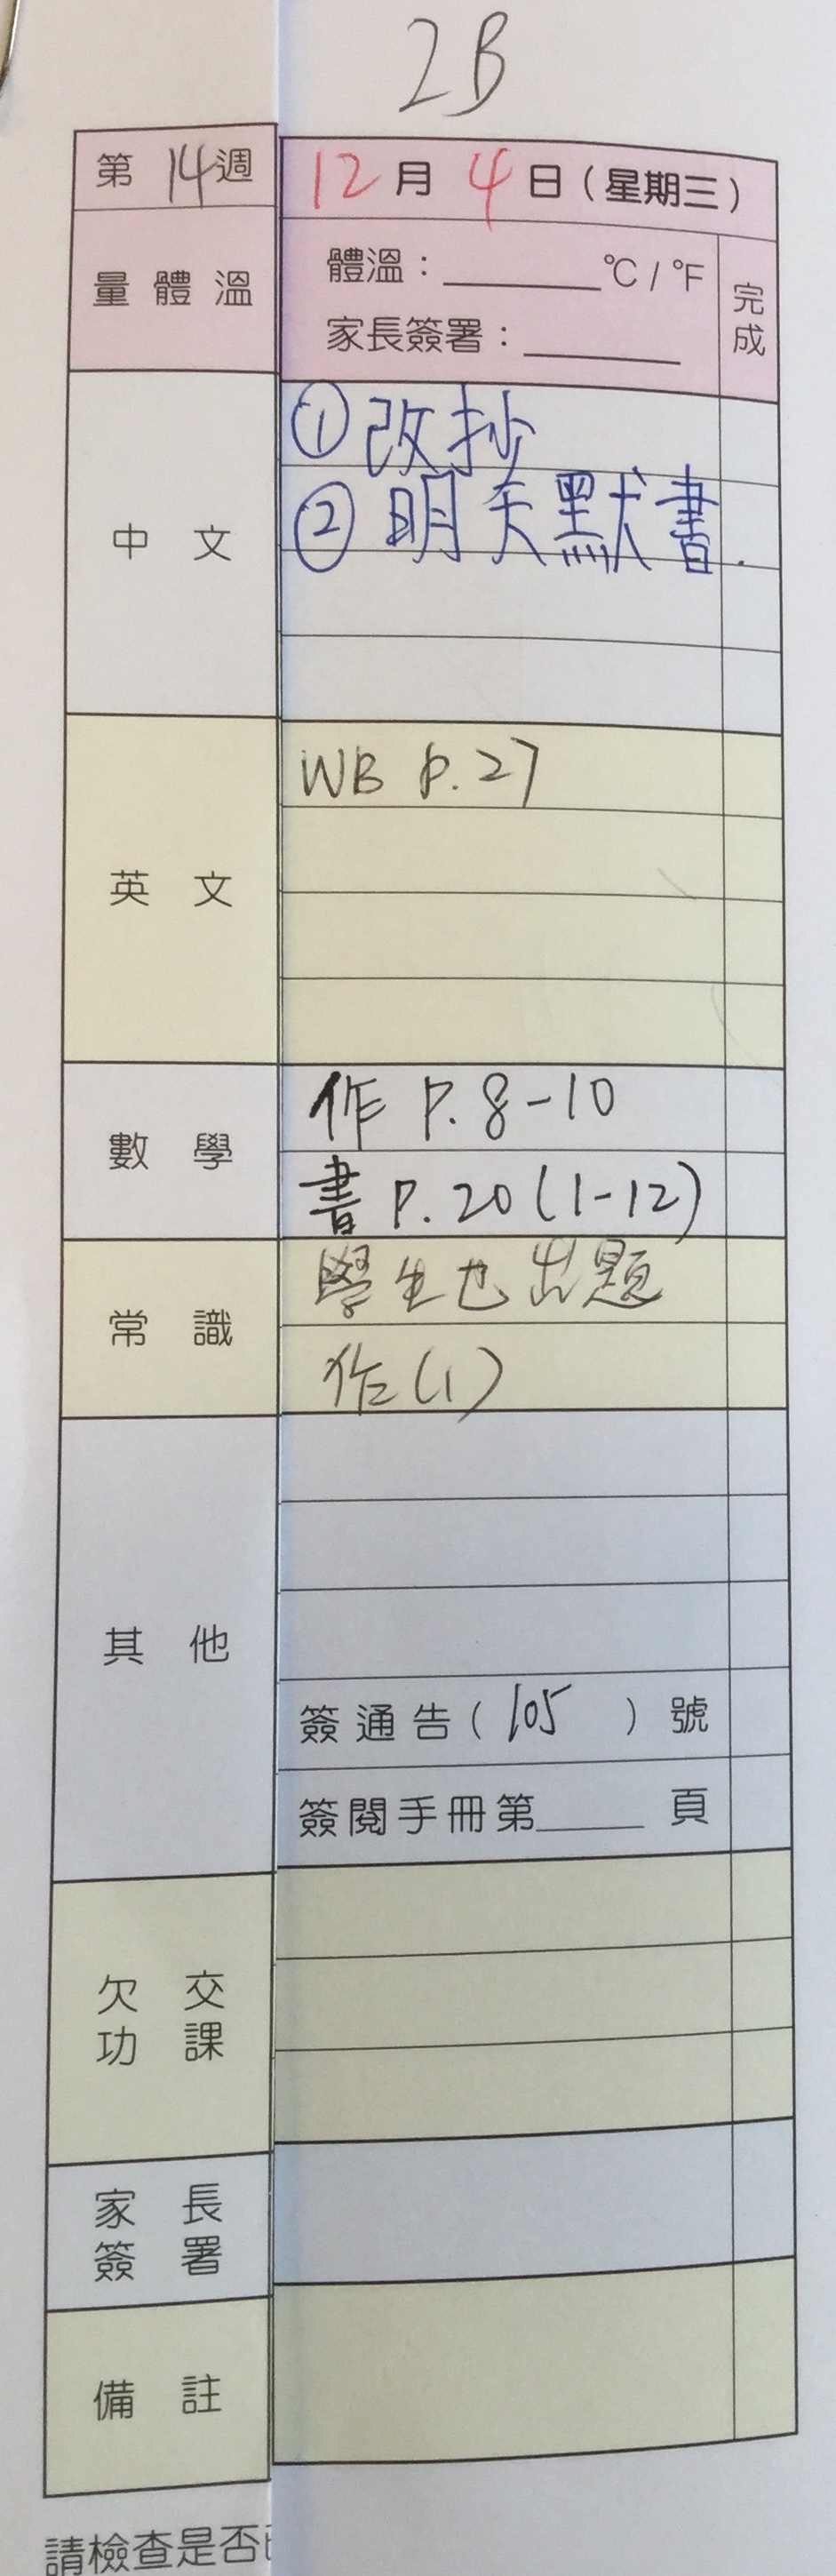 2B
第 14 週
12 月 4 日 ( 星期三 )
量 體 溫
體溫 : ______ °C / °F
家長簽署 : ______
完成
中 文
① 改抄
② 明天默書.
英 文
WB P.27
數 學
作 P. 8-10
書 P. 20 (1-12)
常 識
學生也出題
作 (1)
其 他
簽 通 告 ( 105 ) 號
簽 閱 手 冊 第 ______ 頁
欠 交
功 課
家 長
簽 署
備 註
請檢查是否